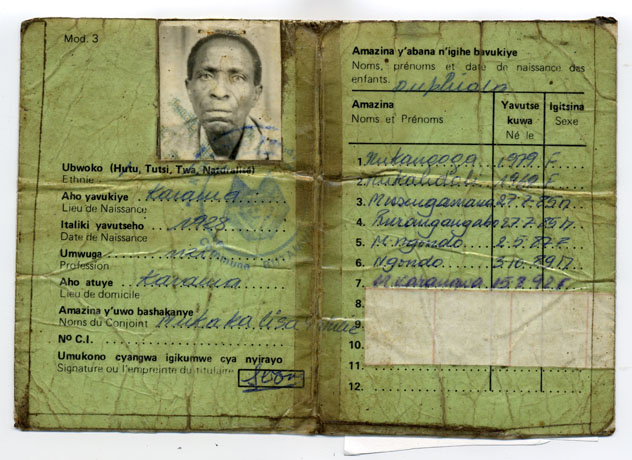 Mod. 3
Ubwoko (Hutu, Tutsi, Twa, Naturalisé)
Ethnie
Aho yavukiye Karama
Lieu de Naissance
Italiki yavutseho 1928
Date de Naissance
Umwuga
Profession
Aho atuye Karama
Lieu de domicile
Amazina y'uwo bashakanye
Noms du Conjoint
No C.I.
Umukono cyangwa igikumwe cya nyirayo
Signature ou l'empreinte du titulaire
Amazina y'abana n'igihe bavukiye
Noms, prénoms et date de naissance des
enfants
Amazina Yavutse Igitsina
Noms et Prénoms kuwa Sexe
Né le
1. Mukangoga 1979 F
2. 1979 F
3. Musengamana 27.7.85 M
4. Burangangabo 27.7.85 M
5. Mungondo 2.5.87 F
6. Ngondo 3.10.89 M
7. 15.8.92 F
8
9
10.
11.
12.